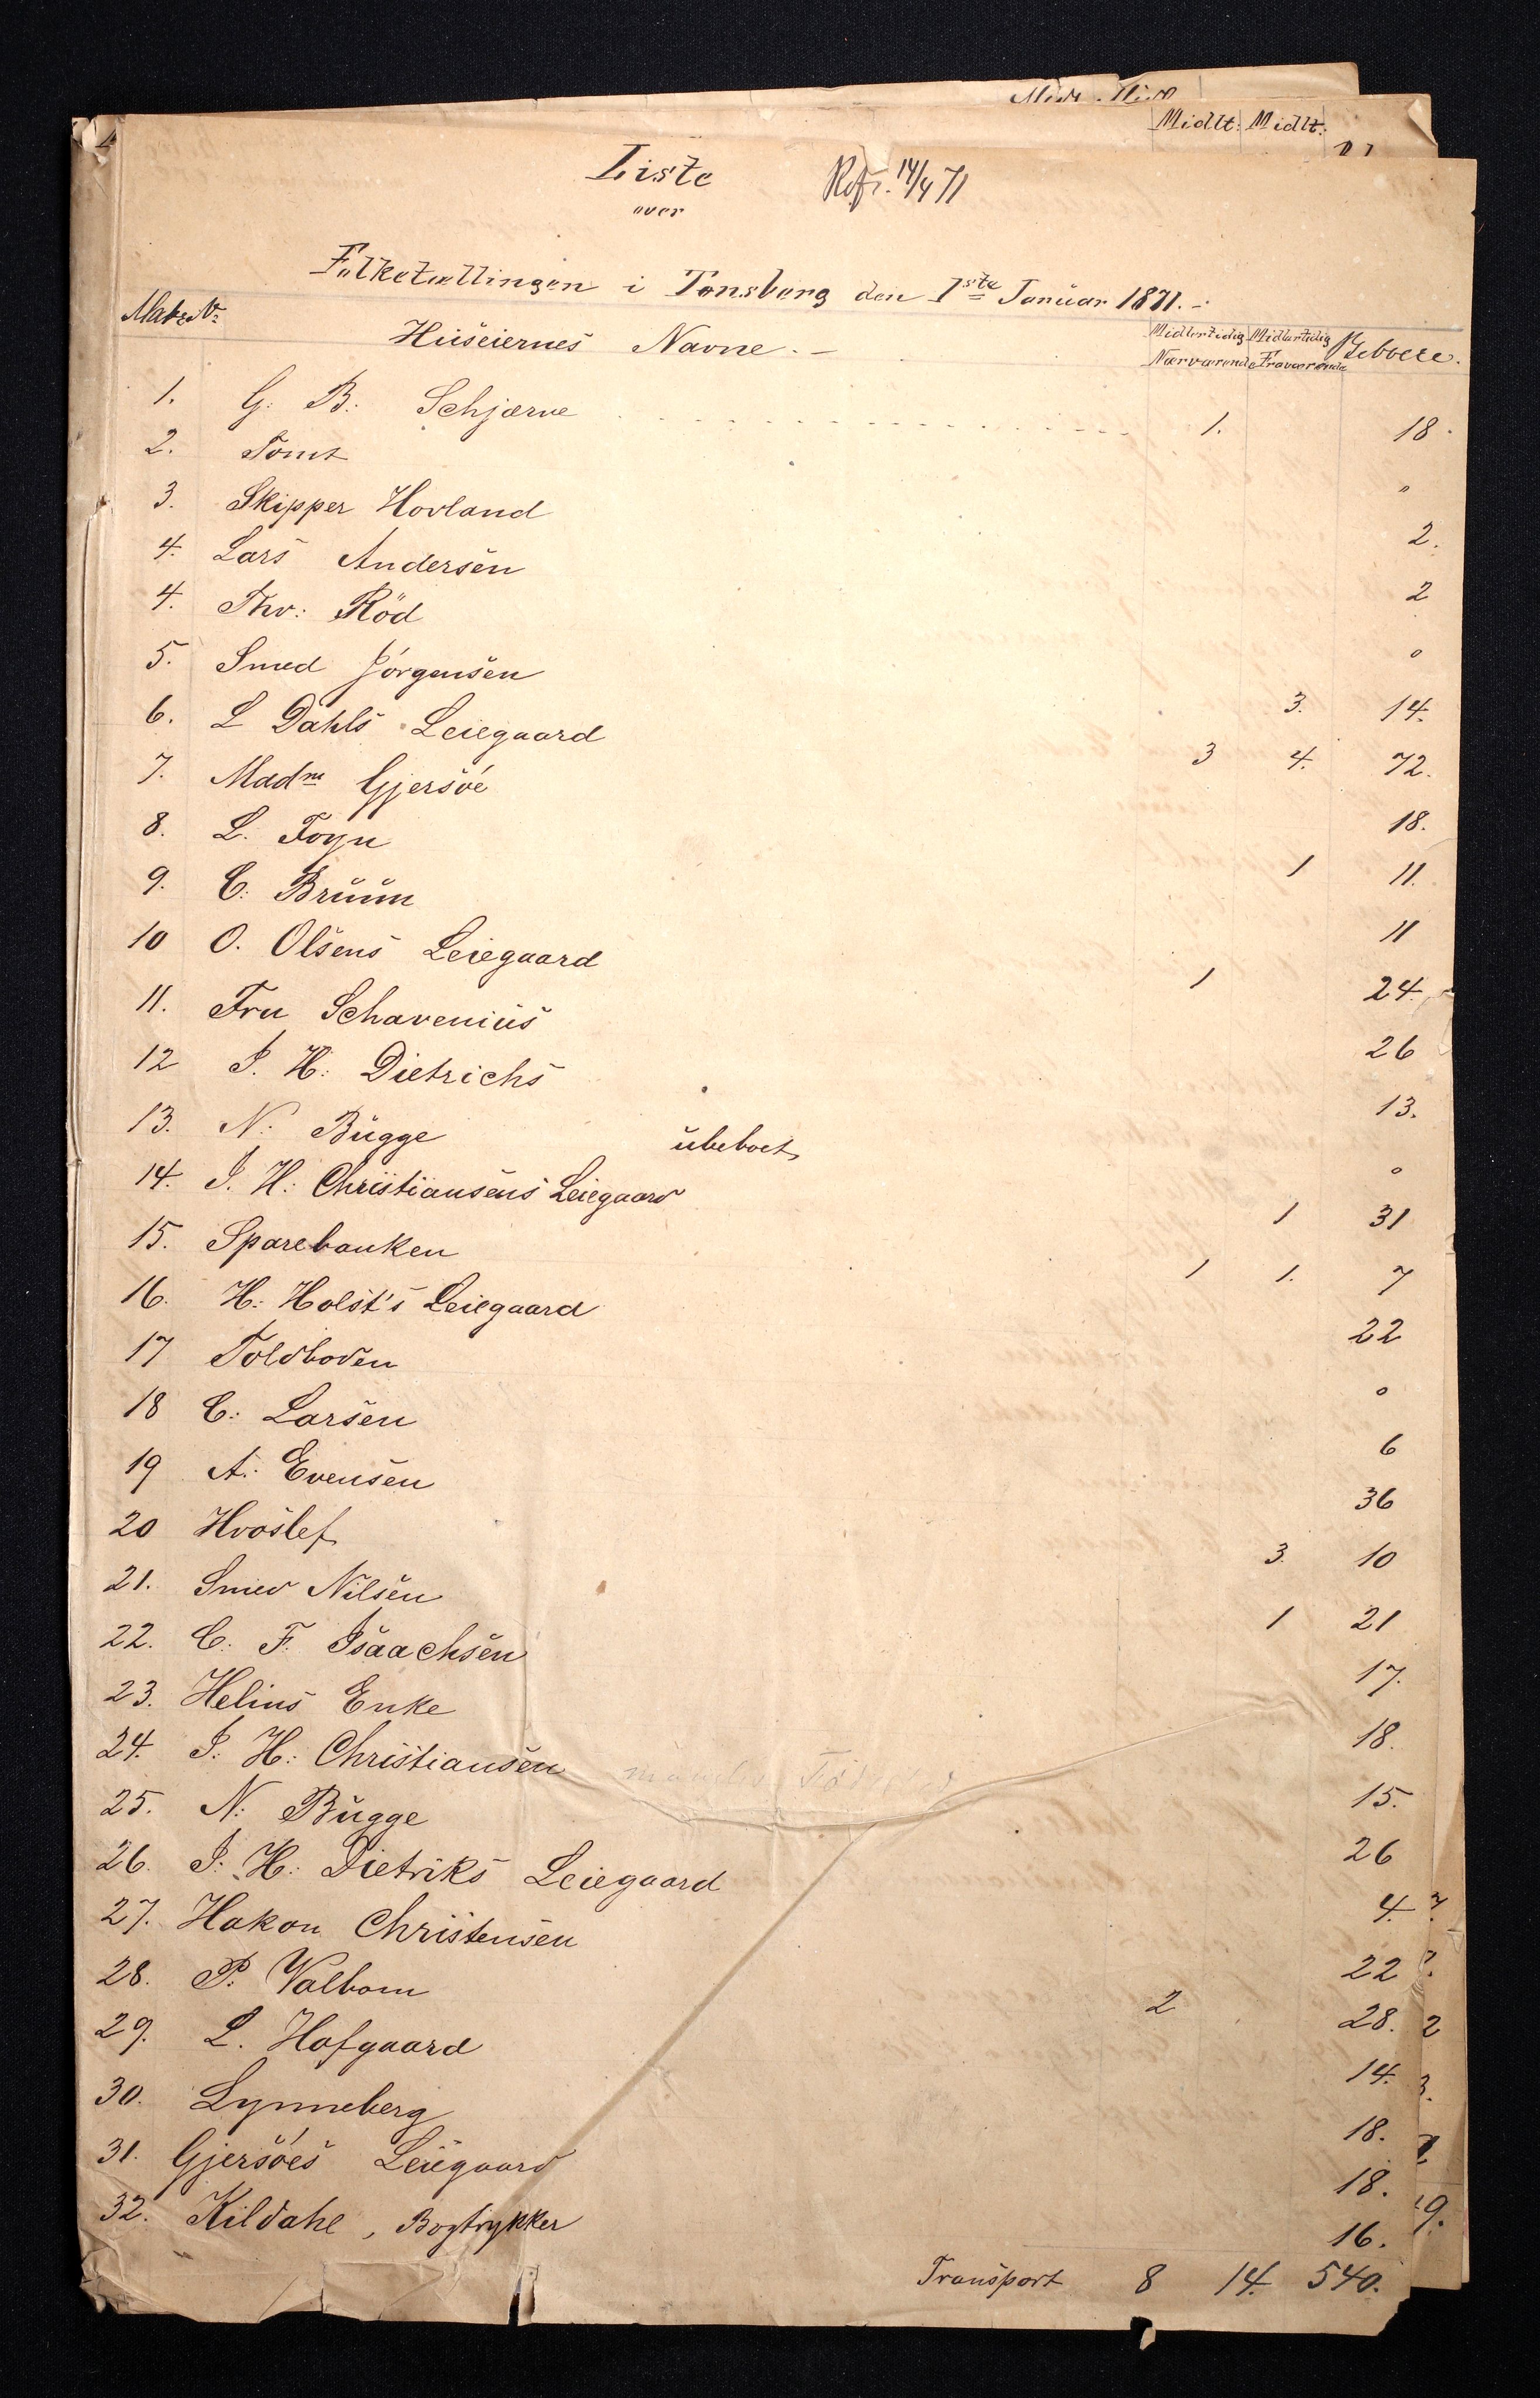 Midlt: Midlt:
Liste Ref. 14/4 71
over
Folketællingen i Tønsberg den 1ste Januar 1871.-
Matr: No Huseiernes Navne.- Midlertidig Nærværende Midlertidig Fraværende Beboere.
1. G: B: Schjærve 1. 18.
2. Tomt "
3. Skipper Hovland 2.
4. Lars Andersen 2
4. Thv: Röd 0
5. Smed Jörgensen 3. 14.
6. L Dahls Leiegaard 3 4. 72.
7. Madm Gjersöe 18.
8. L. Foyn 1 11.
9. C: Bruun 11
10 O. Olsens Leiegaard 1 24.
11. Fru Schavenius 26
12 J. H: Dietrichs 13.
13. N: Bugge ubeboet 0
14. J. H: Christiansens Leiegaard 1 31
15. Sparebanken 1 1. 7
16. H: Holst's Leiegaard 22
17 Toldboden 0
18 C: Larsen 6
19 A: Evensen 36
20 Hvoslef 3. 10
21. Smed Nilsen 1 21
22. C: F. Isaachsen 17.
23. Helins Enke 18.
24. J: H: Christiansen 15.
25. N: Bugge 26
26. J: H: Dietriks Leiegaard 4.
27. Hakon Christensen 22
28. P. Valbom 2 28.
29. L. Hofgaard 14.
30. Lynneberg 18.
31. Gjersöes Leiegaard 18.
32. Kildahl, Bogtrykker 16.
Transport 8 14. 540.